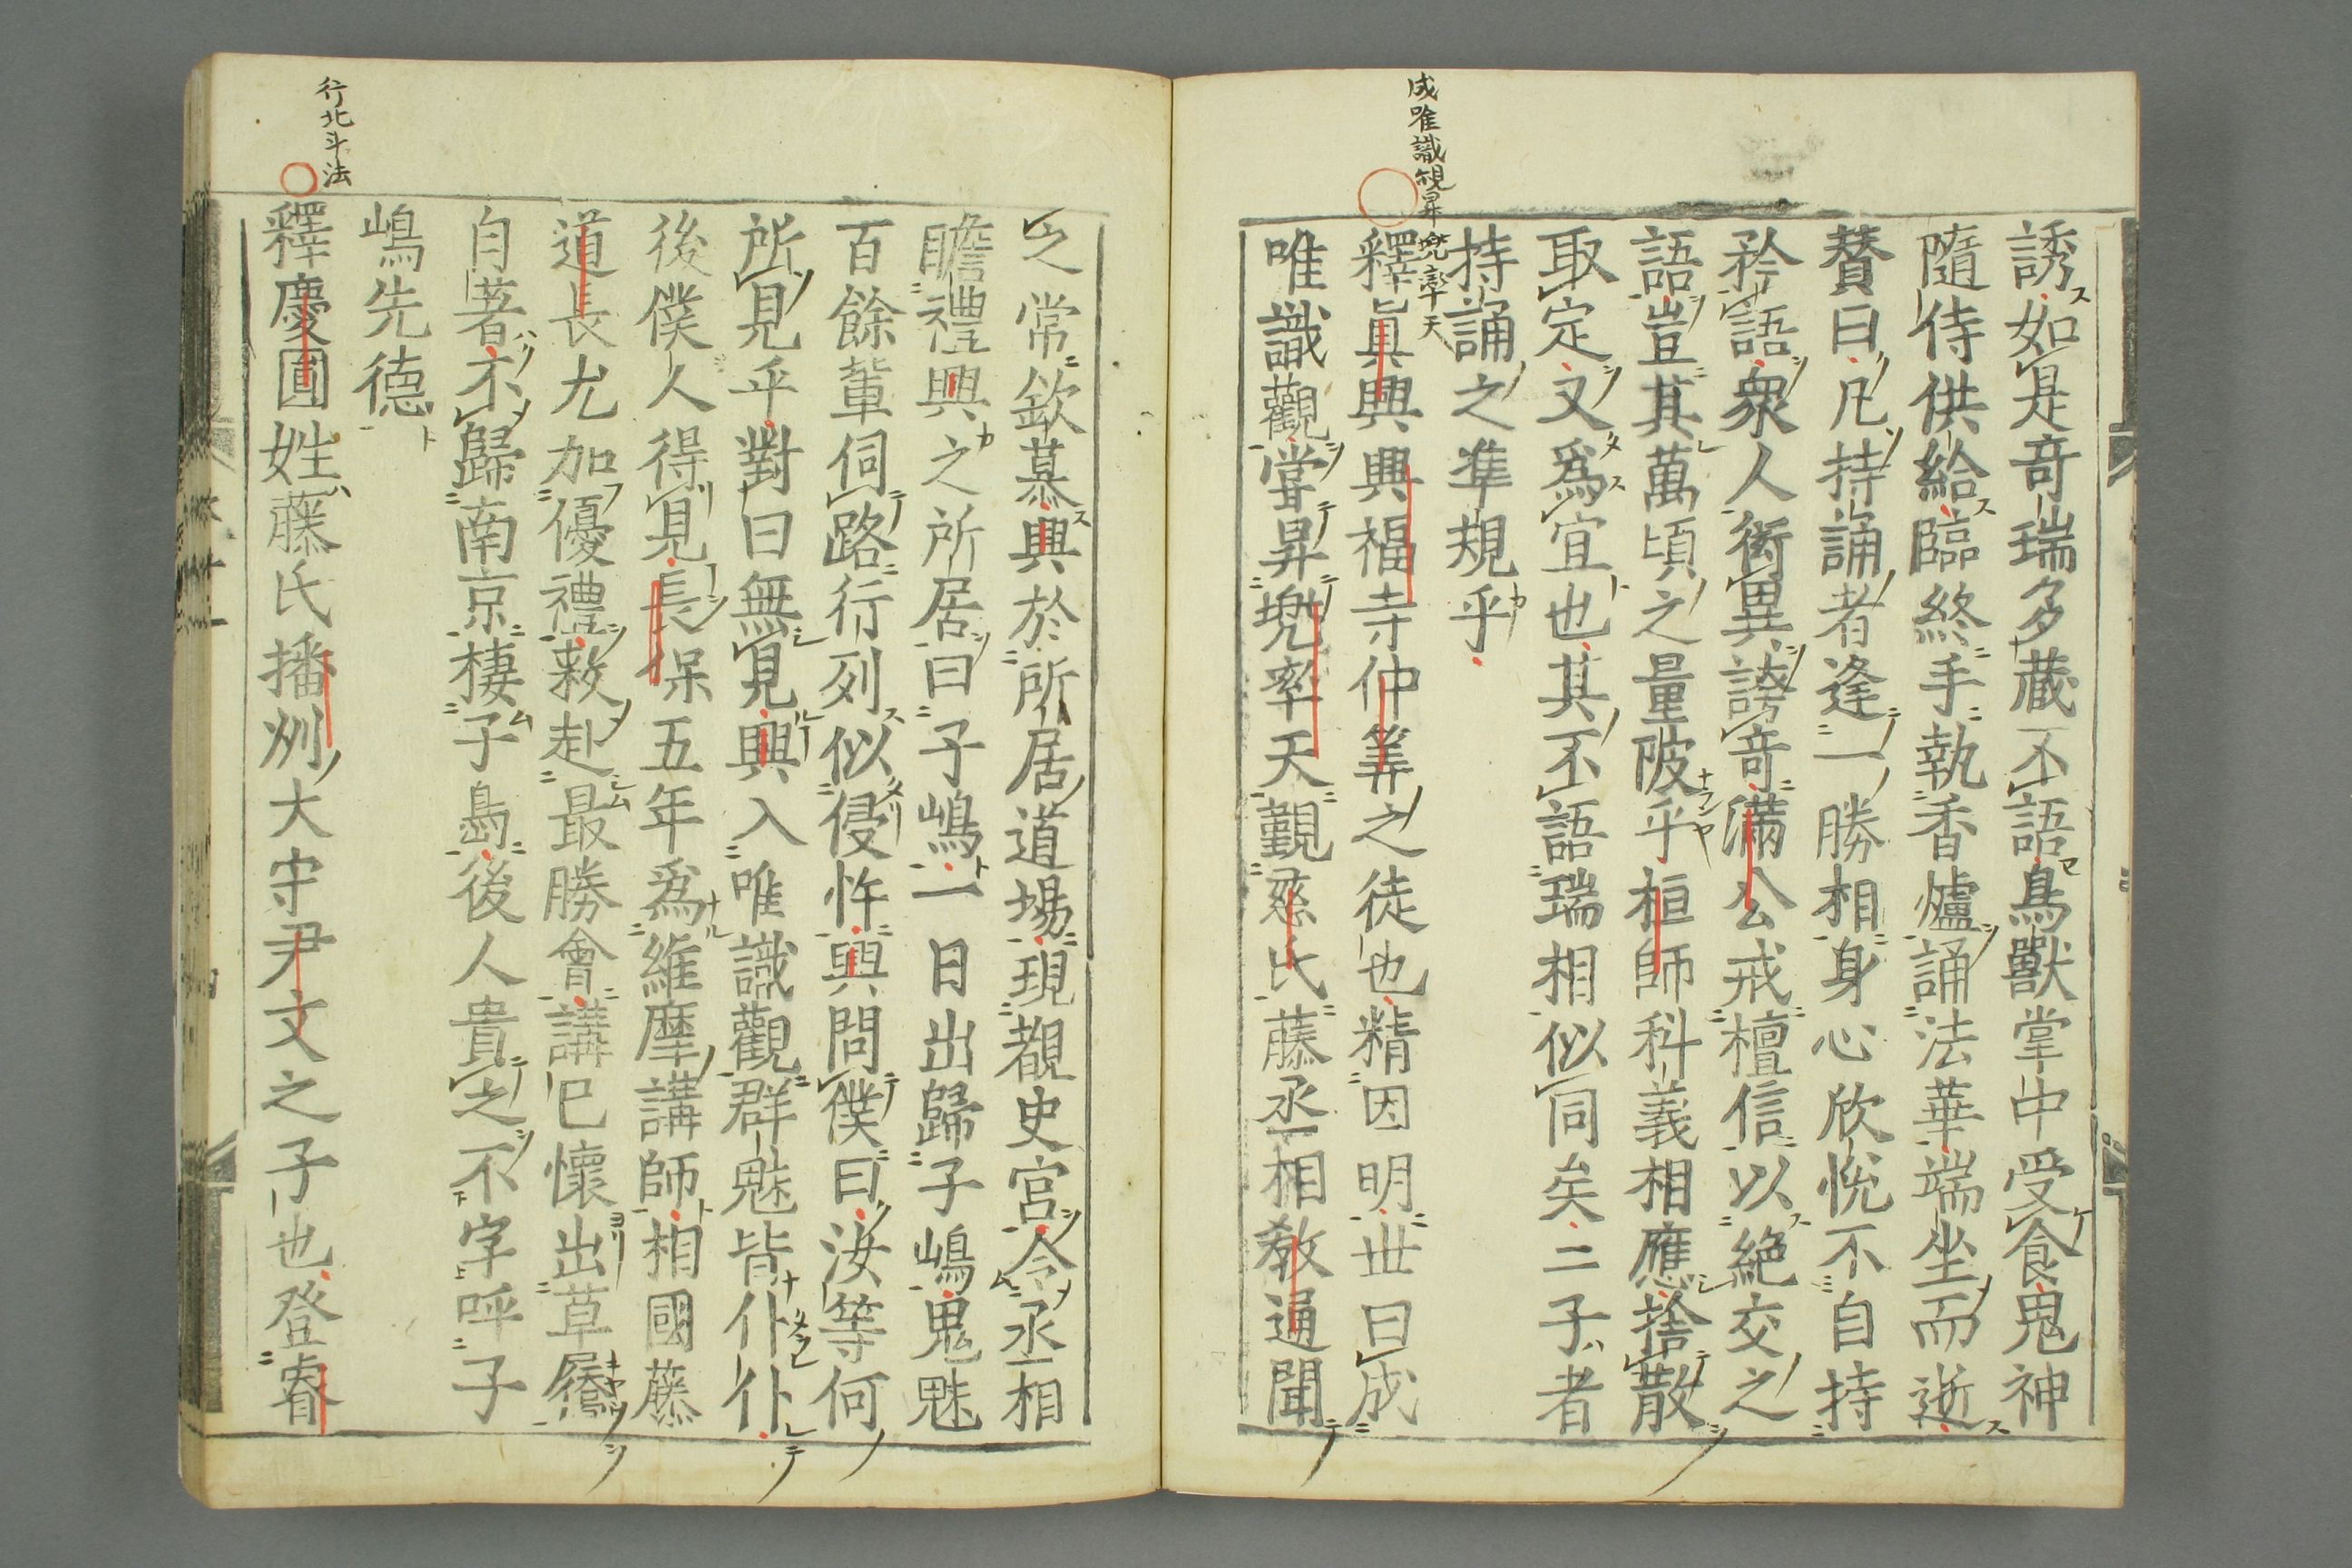 誘如是竒瑞多蔵不語鳥獸掌中受食鬼神
隨侍供給臨終手執香爐誦法華端坐而逝
賛曰凡持誦者逢一勝相身心欣悅不自持
矜語衆人衒異誇竒滿公戒檀信以絶交之
語豈其萬頃之量陂乎桓師科義相應捨散
取定又爲宜也其不語瑞相似同矣二子者
持誦之準規乎
成唯識觀昇兜率天
釋眞興興福寺仲筭之徒也精因明丗曰成
唯識觀當昇兜率天覲慈氏藤丞相教通聞
之常欽慕興於所居道場現覩史宮令丞相
瞻禮興之所居曰子嶋一日出歸子嶋鬼魅
百餘輩伺路行列似侵忤興問僕曰汝等何
所見乎對曰無見興入唯識觀群魅皆仆仆
後僕人得見長保五年爲維摩講師相國藤
道長尤加優禮敕赴最勝會講已懷出草屩
自著不歸南京棲子島後人貴之不字呼子
嶋先德
行北斗法
釋慶圓姓藤氏播州大守尹文之子也登睿